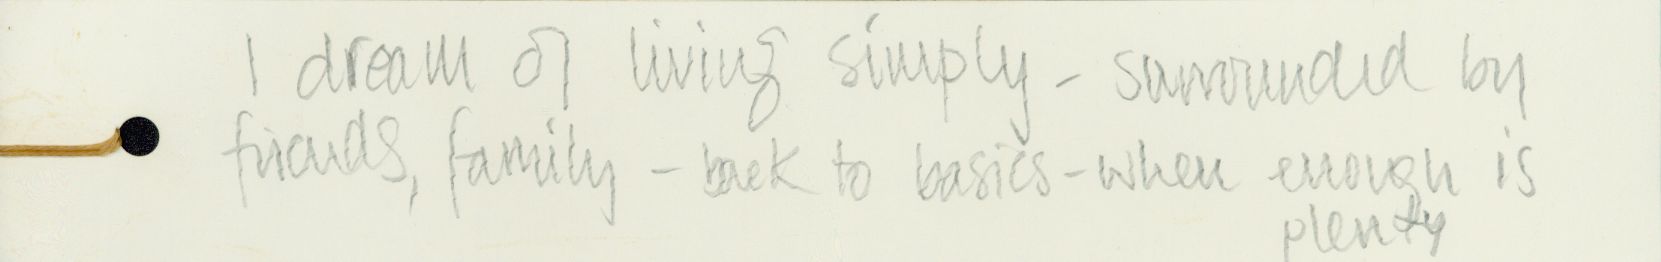 I dream of living simply - surrounded by
friends, family - back to basics - when enough is
plenty